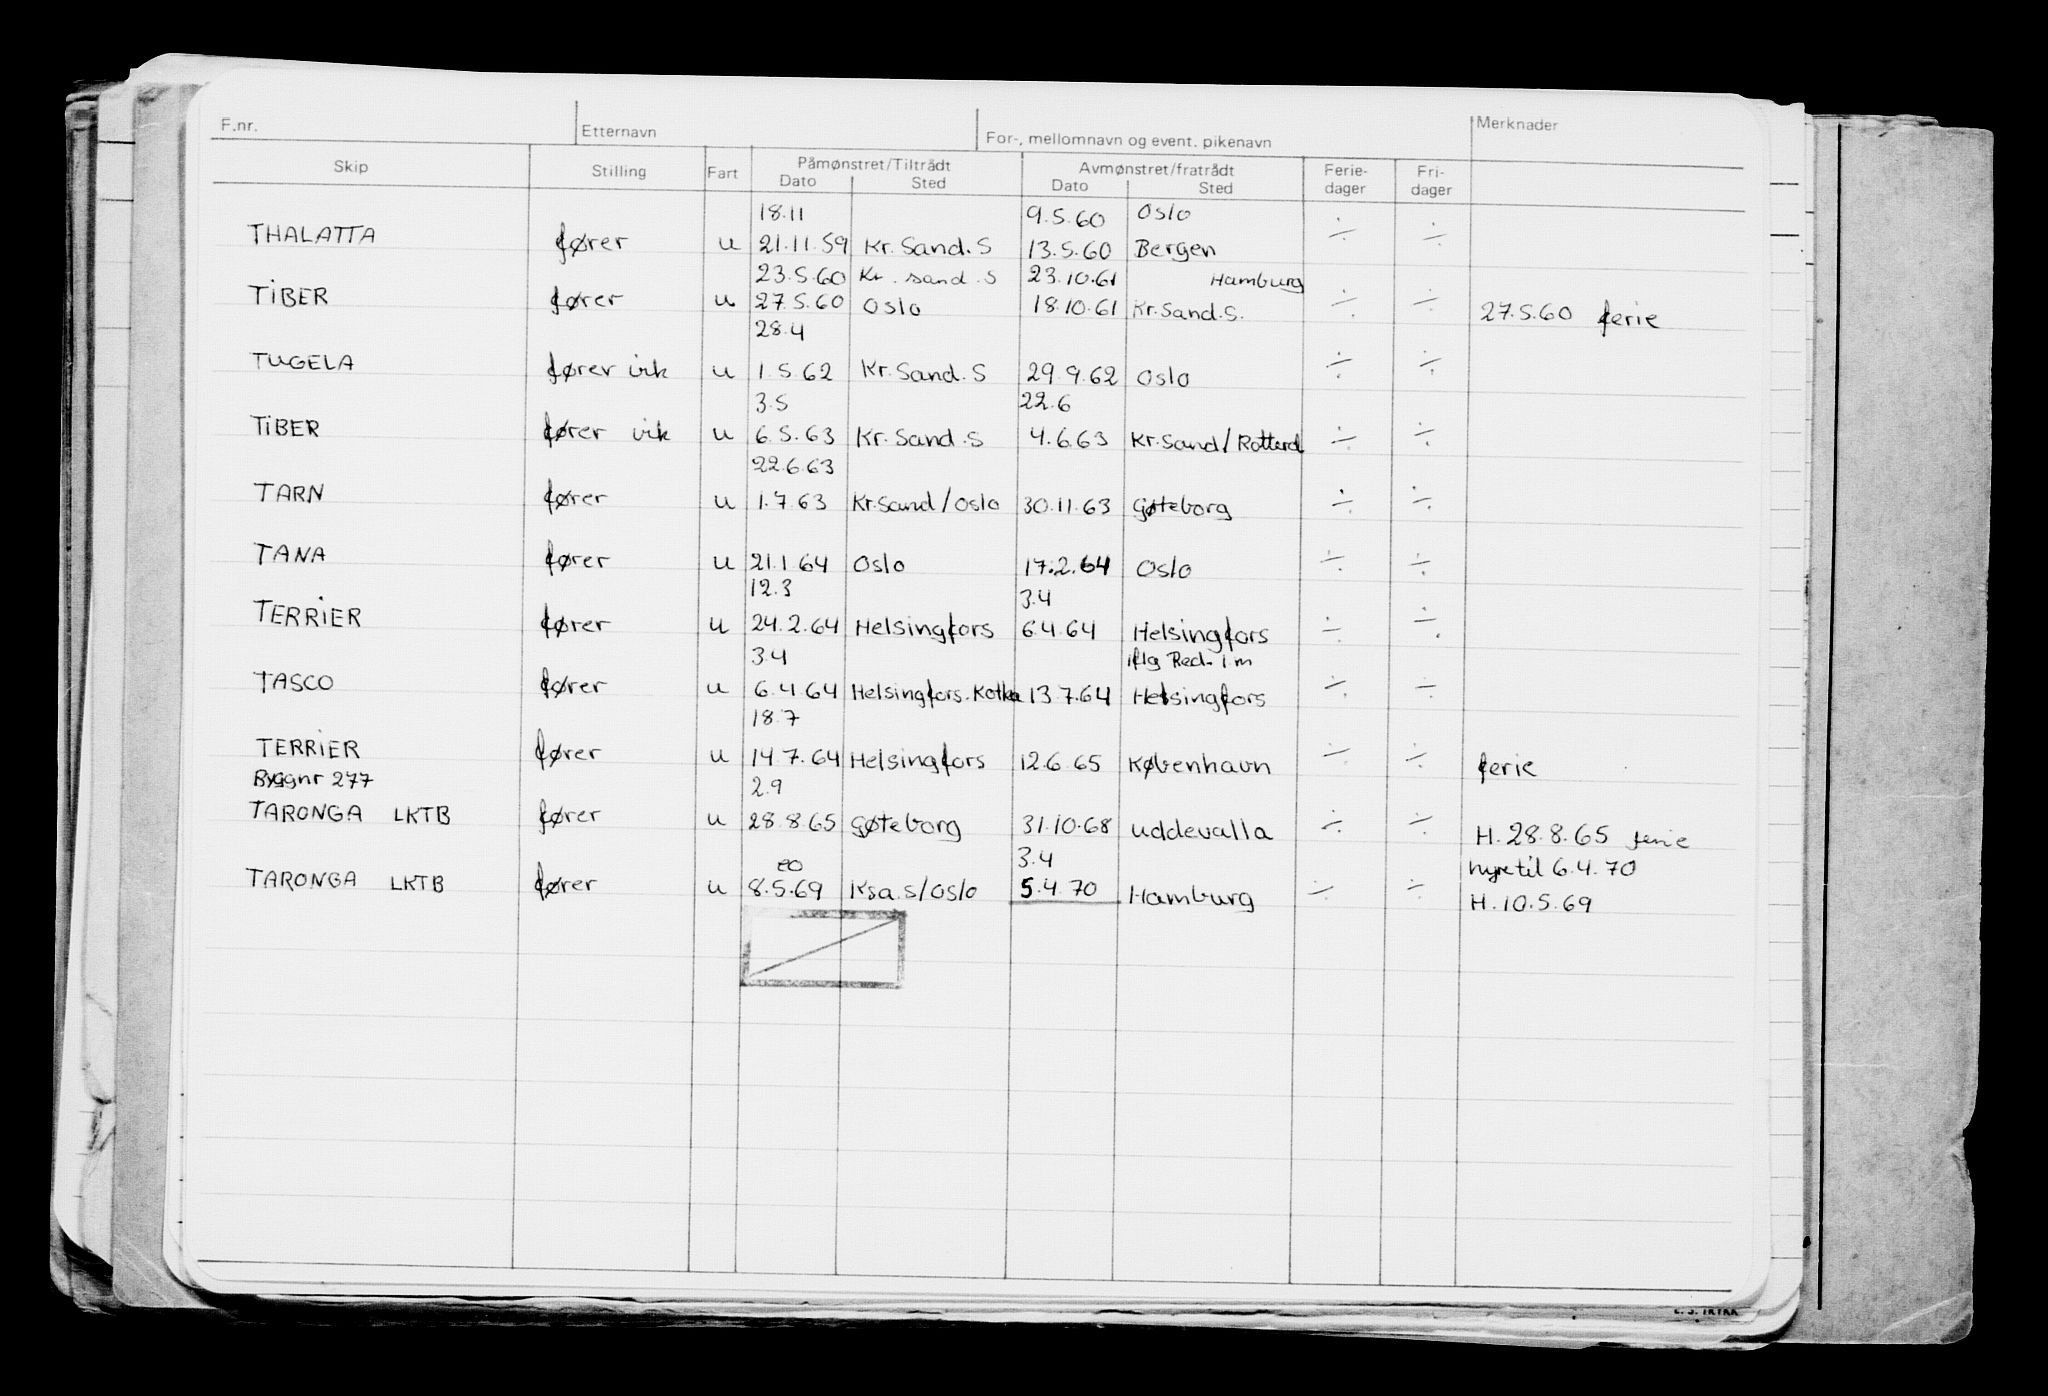 F.nr. Etternavn For-, mellomnavn og event. pikenavn Merknader
Skip Stilling Fart Påmønstret/Tiltrådt Avmønstret/fratrådt Ferie- Fri-
Dato Sted Dato Sted dager dager
18.11 9.5.60 Oslo
THALATTA fører u 21.11.59 Kr.Sand.S 13.5.60 Bergen ÷ ÷
23.5.60 Kr.sand.S 23.10.61 Hamburg
TIBER fører u 27.5.60 Oslo 18.10.61 Kr.Sand.S. ÷ ÷ 27.5.60 ferie
28.4
TUGELA fører vik u 1.5.62 Kr.Sand.S 29.9.62 Oslo ÷ ÷
3.5 22.6
TIBER fører vik u 6.5.63 Kr.Sand.S 4.6.63 Kr.Sand/Rotterd ÷ ÷
22.6.63
TARN fører u 1.7.63 Kr.Sand/Oslo 30.11.63 Gøteborg ÷ ÷
TANA fører u 21.1.64 Oslo 17.2.64 Oslo ÷ ÷
12.3 3.4
TERRIER fører u 24.2.64 Helsingfors 6.4.64 Helsingfors ÷ ÷
3.4 iflg Red.
TASCO fører u 6.4.64 Helsingfors.Kotka 13.7.64 Helsingfors ÷ ÷
18.7
TERRIER fører u 14.7.64 Helsingfors 12.6.65 København ÷ ÷ ferie
Byggnr 277 2.9
TARONGA LKTB fører u 28.8.65 Gøteborg 31.10.68 Uddevalla ÷ ÷ H.28.8.65 ferie
3.4 hyre til 6.4.70
TARONGA LKTB fører u 8.5.69 Ksa.S/Oslo 5.4.70 Hamburg ÷ ÷ H.10.5.69